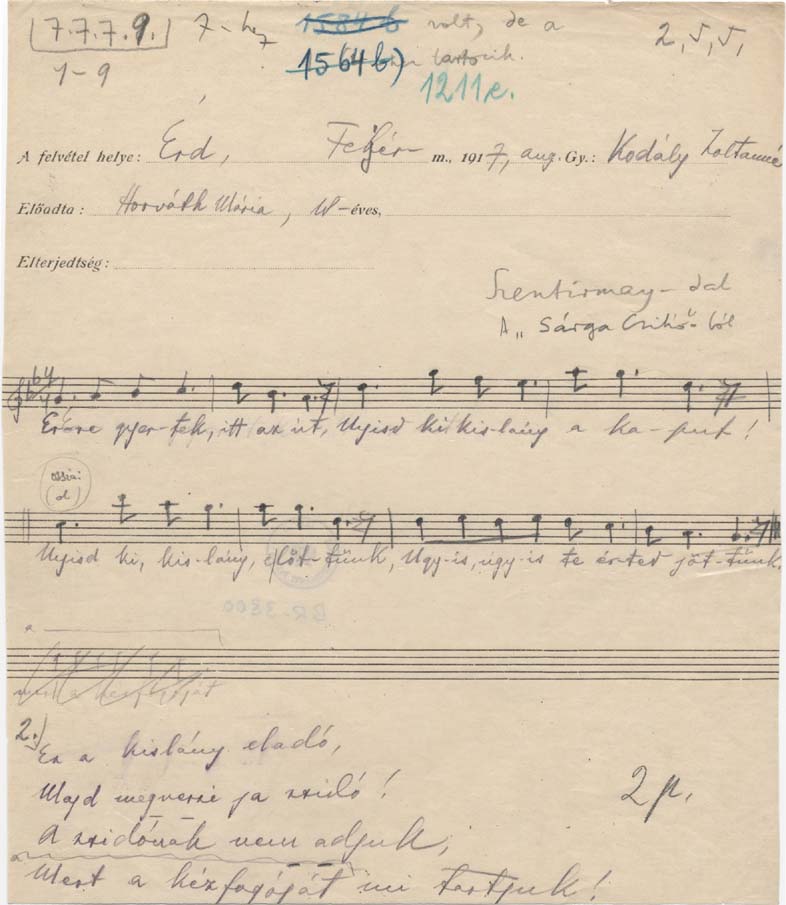 7.7.7.9. 7-hez 1584 b volt, de a 2, 5, 5,
1-9 1564 b) tartozik.
1211e.
A felvétel helye: Érd, Fehér m., 1917, aug. Gy.: Kodály Zoltánné
Előadta: Horváth Mária, éves,
Elterjedtség:
Szentirmay-dal
A „Sárga Csikó"-ból
Erőre gyer-tek, itt az út, Nyisd ki kis-lány a ka-put!
ossia:
(d)
Nyisd ki, kis-lány, előt-tünk, Ugy-is, úgy-is te ér-ted jöt-tünk.
BR-3800
a
2.) Ez a kislány eladó,
Majd megveszi ja zsidó! 2 p.
A zsidónak nem adjuk,
Mert a kézfogóját mi tartjuk!